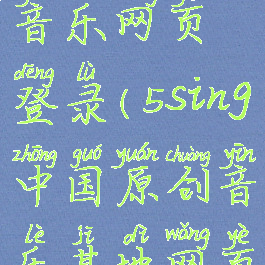 音乐网页
dēng lù
登录(5sing
zhōng guó yuán chuàng yīn
中国原创音
lè jī dì wǎng yè
乐基地网页